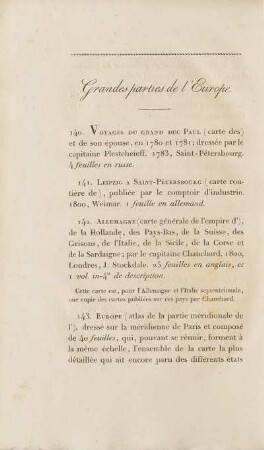 Grandes parties de l'Europe.
140. VOYAGES DU GRAND DUC PAUL (carte des)
et de son épouse, en 1780 et 1781; dressée par le
capitaine Plestcheieff. 1783, Saint-Pétersbourg.
4 feuilles en russe.
141. LEIPZIG A SAINT-PÉTERSBOURG (carte rou-
tière de), publiée par le comptoir d'industrie.
1800, Weimar. 1 feuille en allemand.
142. ALLEMAGNE (carte générale de l'empire d'),
de la Hollande, des Pays-Bas, de la Suisse, des
Grisons, de l'Italie, de la Sicile, de la Corse et
de la Sardaigne; par le capitaine Chauchard. 1800,
Londres, J. Stockdale. 25 feuilles en anglais, et
1 vol. in-4° de description.
Cette carte est, pour l'Allemagne et l'Italie septentrionale,
une copie des cartes publiées sur ces pays par Chauchard.
143. EUROPE (atlas de la partie méridionale de
l'), dressé sur la méridienne de Paris et composé
de 40 feuilles, qui, pouvant se réunir, forment à
la même échelle, l'ensemble de la carte la plus
détaillée qui ait encore paru des différents états